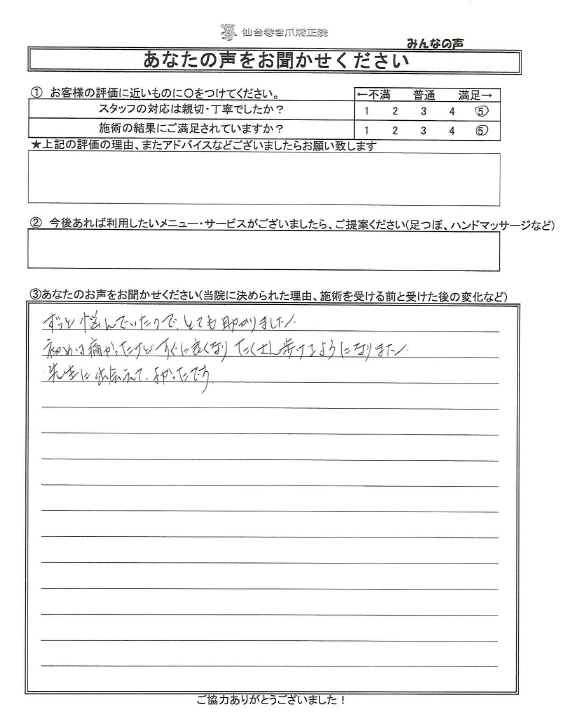 仙台巻き爪矯正院
みんなの声
あなたの声をお聞かせください
① お客様の評価に近いものに○をつけてください。
←不満 普通 満足→
スタッフの対応は親切・丁寧でしたか？ 1 2 3 4 5
施術の結果にご満足されていますか？ 1 2 3 4 5
★上記の評価の理由、またアドバイスなどございましたらお願い致します
② 今後あれば利用したいメニュー・サービスがございましたら、ご提案ください(足つぼ、ハンドマッサージなど)
③あなたのお声をお聞かせください(当院に決められた理由、施術を受ける前と受けた後の変化など)
ずっと悩んでいたのでとても助かりました！
初めは痛かったけどすぐに良くなりたくさん歩けるようになりました！
先生に出会えてよかったです
ご協力ありがとうございました！